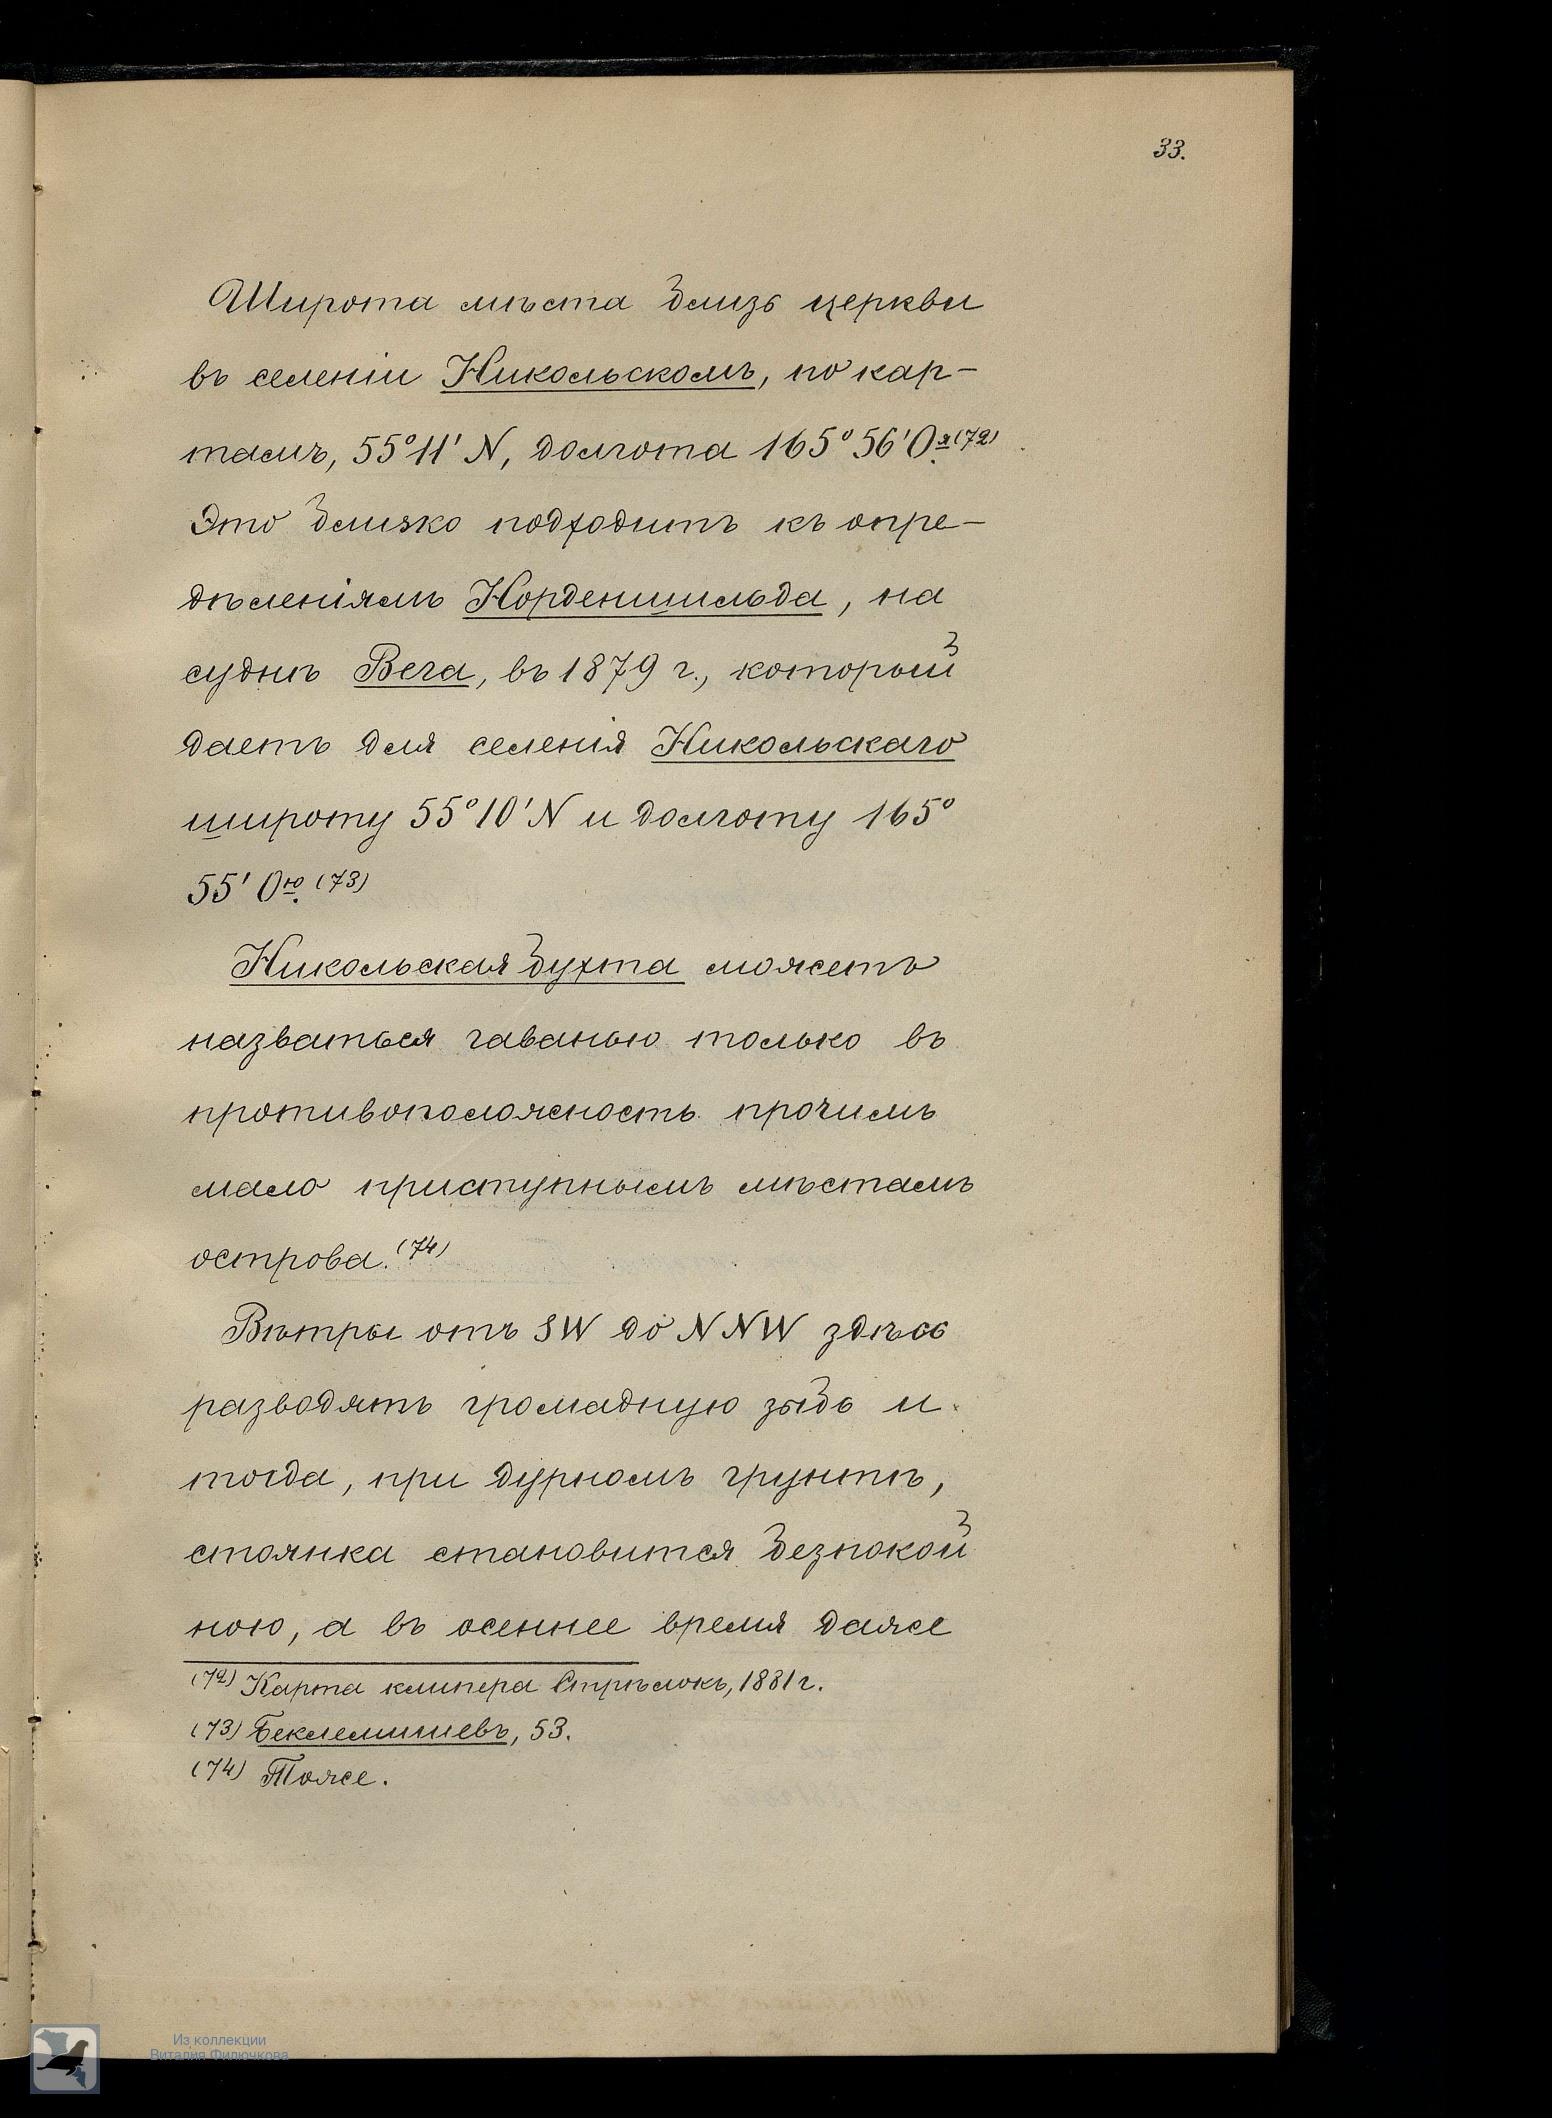 33.
Широта мѣста близь церкви
въ селеніи Никольскомъ, по кар-
тамъ, 55°11' N, долгота 165°56' Oя.(72)
Это близко подходитъ къ опре-
дѣленіямъ Норденшильда, на
суднѣ Вега, въ 1879 г., который
даетъ для селенія Никольскаго
широту 55°10' N и долготу 165°
55' Oю.(73)
Никольская бухта можетъ
назваться гаванью только въ
противоположность прочимъ
мало приступнымъ мѣстамъ
острова.(74)
Вѣтры отъ SW до NNW здѣсь
разводятъ громадную зыбь и
тогда, при дурномъ грунтѣ,
стоянка становится безпокой
ною, а въ осеннее время даже
(72) Карта клипера Стрѣлокъ, 1881 г.
(73) Беклемишевъ, 53.
(74) Тоже.
Из коллекции
Виталия Филючкова